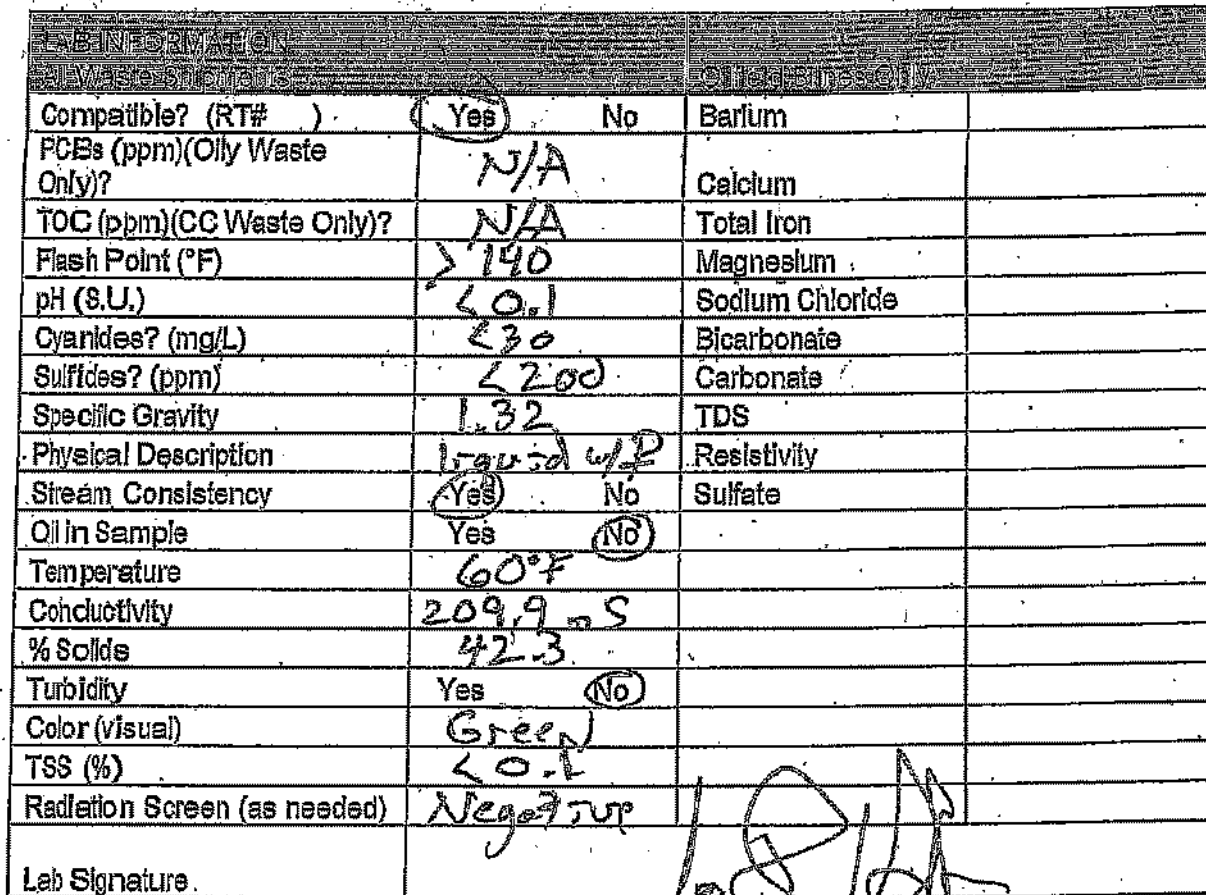 LAB INFORMATION
All Waste Shipments Oilfield Brines Only
Compatible? (RT# ) Yes No Barium
PCBs (ppm)(Oily Waste
Only)? N/A Calcium
TOC (ppm)(CC Waste Only)? N/A Total Iron
Flash Point (°F) >140 Magnesium
pH (S.U.) <0.1 Sodium Chloride
Cyanides? (mg/L) <30 Bicarbonate
Sulfides? (ppm) <200 Carbonate
Specific Gravity 1.32 TDS
Physical Description liquid Resistivity
Stream Consistency Yes No Sulfate
Oil in Sample Yes No
Temperature 60°F
Conductivity 209.9 S
% Solids 42.3
Turbidity Yes No
Color (visual) Green
TSS (%) <0.1
Radiation Screen (as needed) Negative
Lab Signature